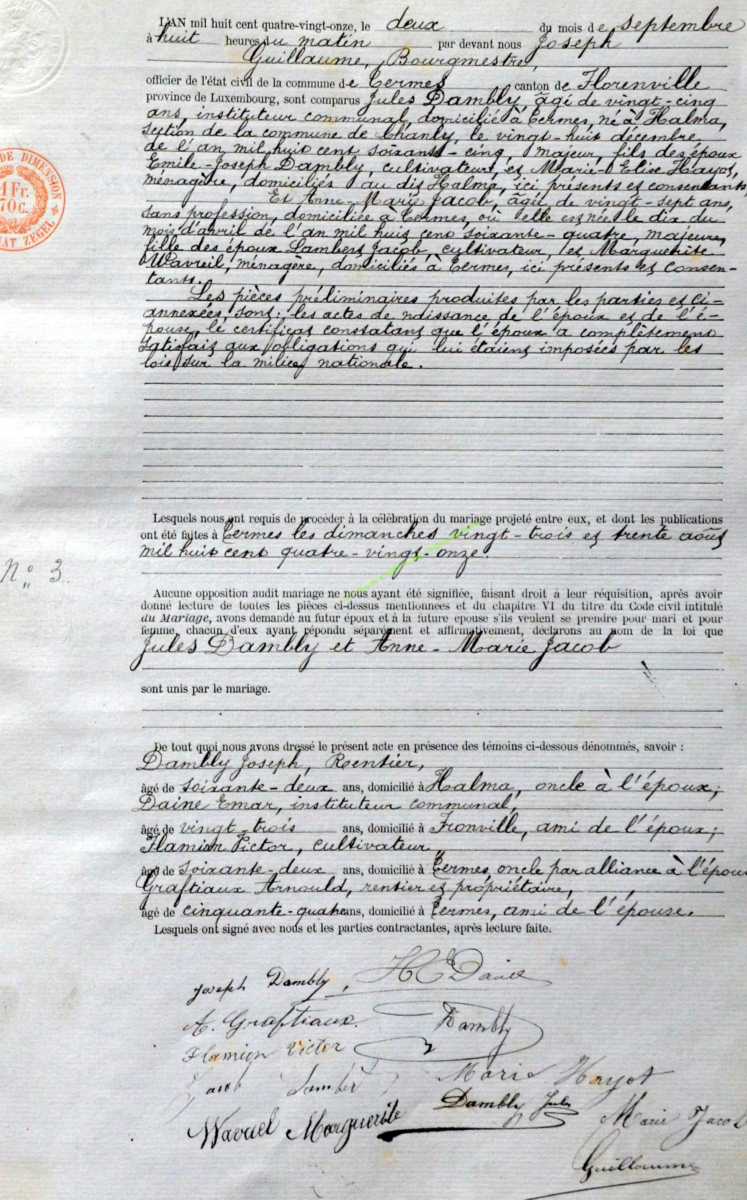 L'AN mil huit cent quatre-vingt-onze, le deux du mois de Septembre
à huit heures du matin par devant nous Joseph
Guillaume, Bourgmestre,
officier de l'état civil de la commune de Termes canton de Florenville
province de Luxembourg, sont comparus Jules Dambly, âgé de vingt-cinq
ans, instituteur communal, domicilié à Termes, né à Halma,
section de la commune de Chanly, le vingt-huit décembre
de l'an mil huit cent soixante-cinq, majeur, fils des époux
Emile-Joseph Dambly, cultivateur, et Marie-Elise Hayot,
ménagère, domiciliés au dit Halma, ici présents et consentants,
Et Anne-Marie Jacob, âgée de vingt-sept ans,
sans profession, domiciliée à Termes, où elle est née le dix du
mois d'avril de l'an mil huit cent soixante-quatre, majeure,
fille des époux Lambert Jacob, cultivateur, et Marguerite
Wavreil, ménagère, domiciliés à Termes, ici présents et consen-
tants.
Les pièces préliminaires produites par les parties et ci-
annexées, sont: les actes de naissance de l'époux et de l'é-
pouse, le certificat constatant que l'époux a complètement
satisfait aux obligations qui lui étaient imposées par les
lois sur la milice nationale.
DE DIMENSION
1 Fr.
70c.
ZEGEL
Lesquels nous ont requis de procéder à la célébration du mariage projeté entre eux, et dont les publications
ont été faites à Termes les dimanches vingt-trois et trente août
mil huit cent quatre-vingt-onze.
N° 3.
Aucune opposition audit mariage ne nous ayant été signifiée, faisant droit à leur réquisition, après avoir
donné lecture de toutes les pièces ci-dessus mentionnées et du chapitre VI du titre du Code civil intitulé
du Mariage, avons demandé au futur époux et à la future épouse s'ils veulent se prendre pour mari et pour
femme, chacun d'eux ayant répondu séparément et affirmativement, déclarons au nom de la loi que
Jules Dambly et Anne-Marie Jacob
sont unis par le mariage.
De tout quoi nous avons dressé le présent acte en présence des témoins ci-dessous dénommés, savoir :
Dambly Joseph, Rentier,
âgé de soixante-deux ans, domicilié à Halma, oncle à l'époux;
Daine Emar, instituteur communal,
âgé de vingt-trois ans, domicilié à Fronville, ami de l'époux;
Flamion Victor, cultivateur
âgé de soixante-deux ans, domicilié à Termes, oncle par alliance à l'épouse
Graftiaux Arnould, rentier et propriétaire,
âgé de cinquante-quatre ans, domicilié à Termes, ami de l'épouse.
Lesquels ont signé avec nous et les parties contractantes, après lecture faite.
Joseph Dambly. Daine
A. Graftiaux. Dambly
Flamion Victor
Jacob Lambert Marie Hayot
Dambly Jules Marie Jacob
Wavreil Marguerite
Guillaume